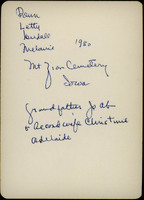 Dawn
Letty
Kendall
Melanie 1980
Mt Zion Cemetery
Iowa
Grandfather Joab
+ second wife Christine
Adelaide